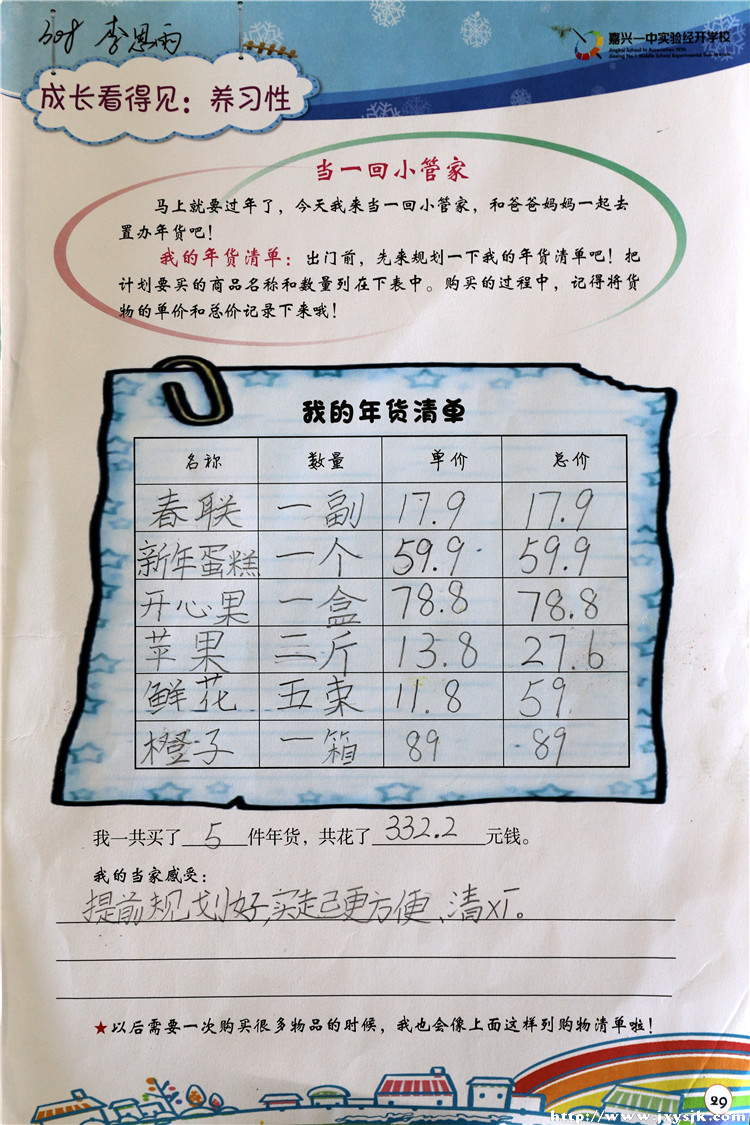 308 李恩雨
嘉兴一中实验经开学校
成长看得见：养习性
当一回小管家
马上就要过年了，今天我来当一回小管家，和爸爸妈妈一起去
置办年货吧！
我的年货清单：出门前，先来规划一下我的年货清单吧！把
计划要买的商品名称和数量列在下表中。购买的过程中，记得将货
物的单价和总价记录下来哦！
我的年货清单
名称 数量 单价 总价
春联 一副 17.9 17.9
新年蛋糕 一个 59.9 59.9
开心果 一盒 78.8 78.8
苹果 二斤 13.8 27.6
鲜花 五束 11.8 59
橙子 一箱 89 89
我一共买了5件年货，共花了332.2元钱。
我的当家感受：
提前规划好，买起更方便、清
★以后需要一次购买很多物品的时候，我也会像上面这样列购物清单啦！
29
http://www.jxysjk.com